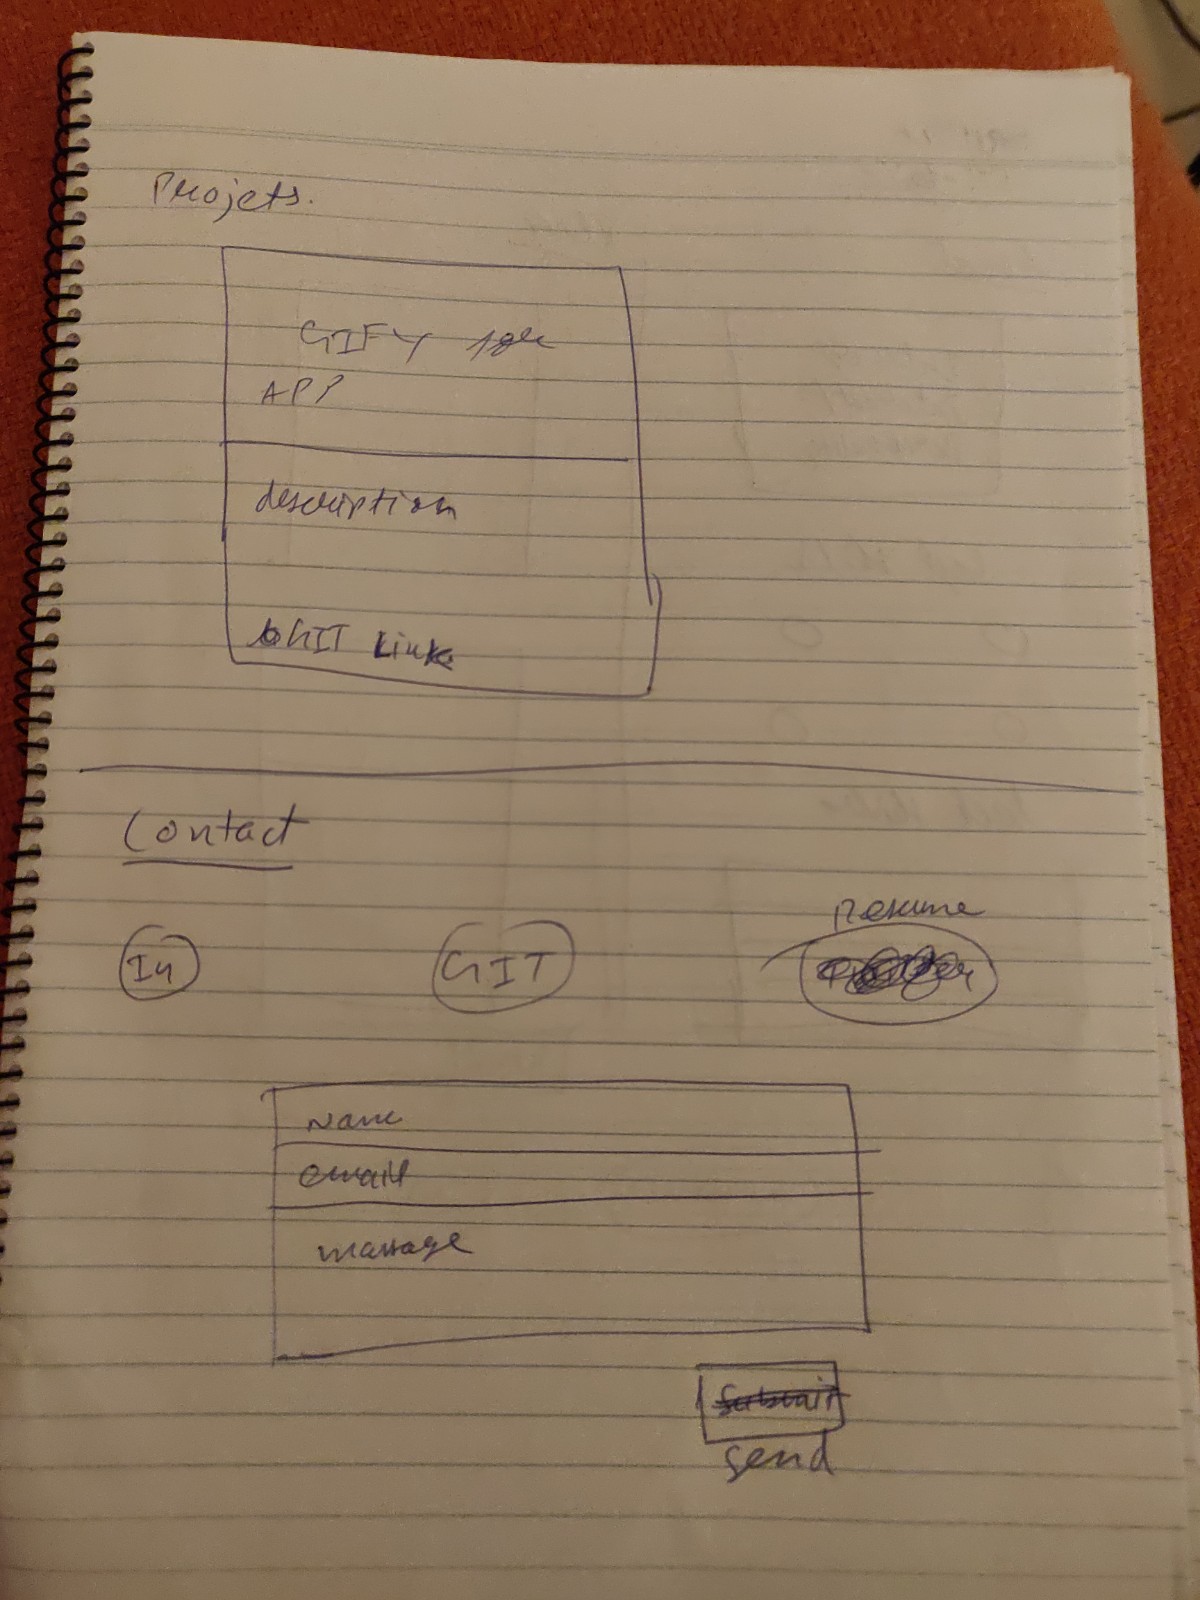 Projets.
GIFY
APP
description
GIT Link
Contact
Resume
In
GIT
Name
email
massage
Submit
send